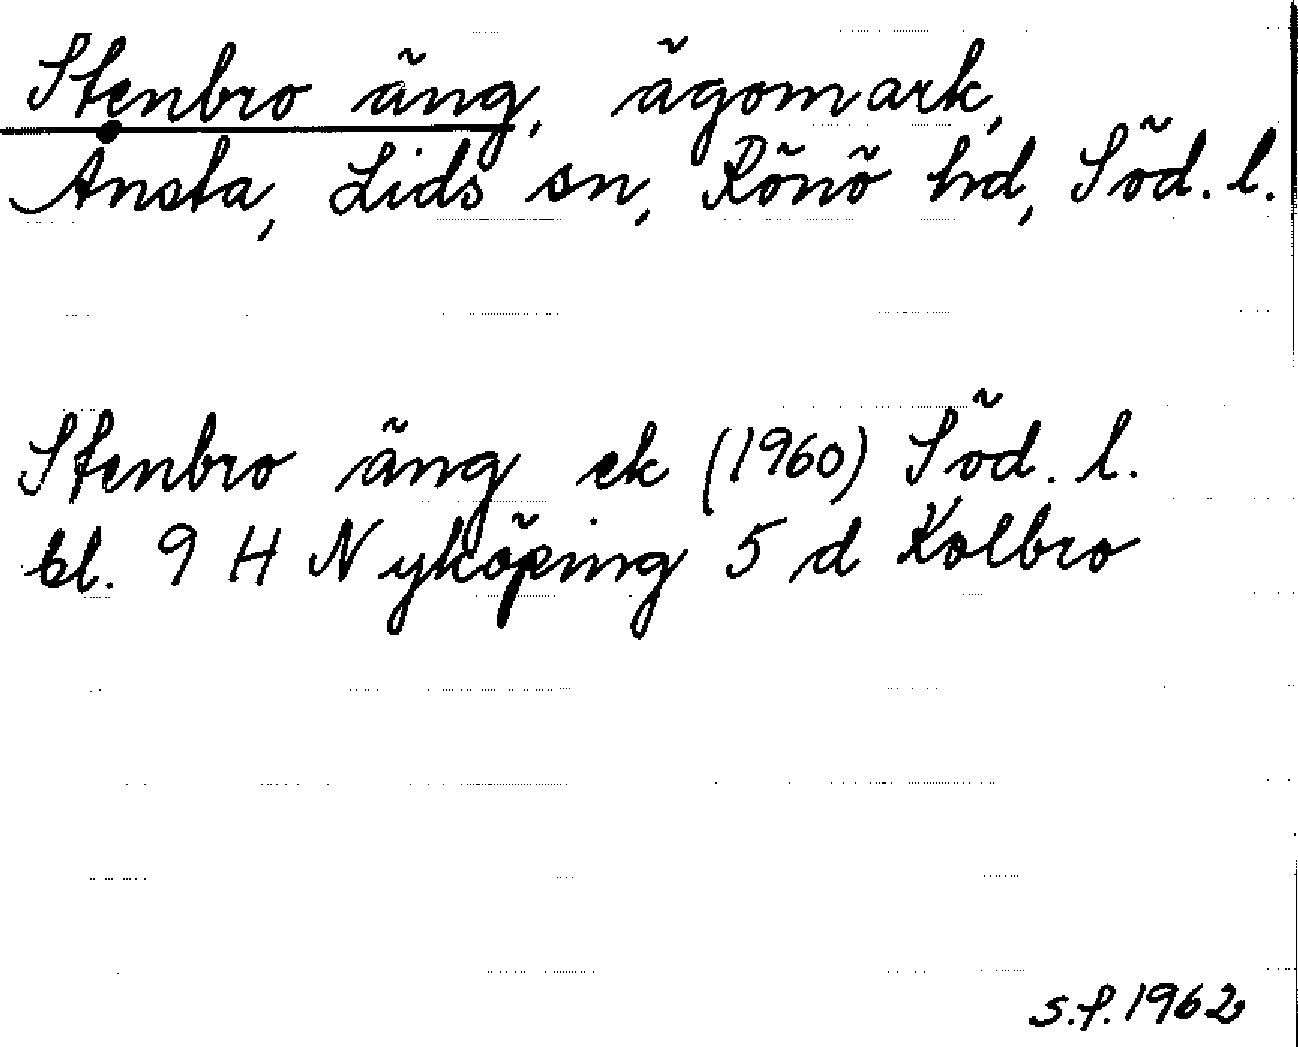 Stenbro äng, ägomark,
Ånsta, Lids sn, Rönö hd, Söd. l.
Stenbro äng ek (1960) Söd. l.
bl. 9 H Nyköping 5 d Kolbro
s.f. 1962